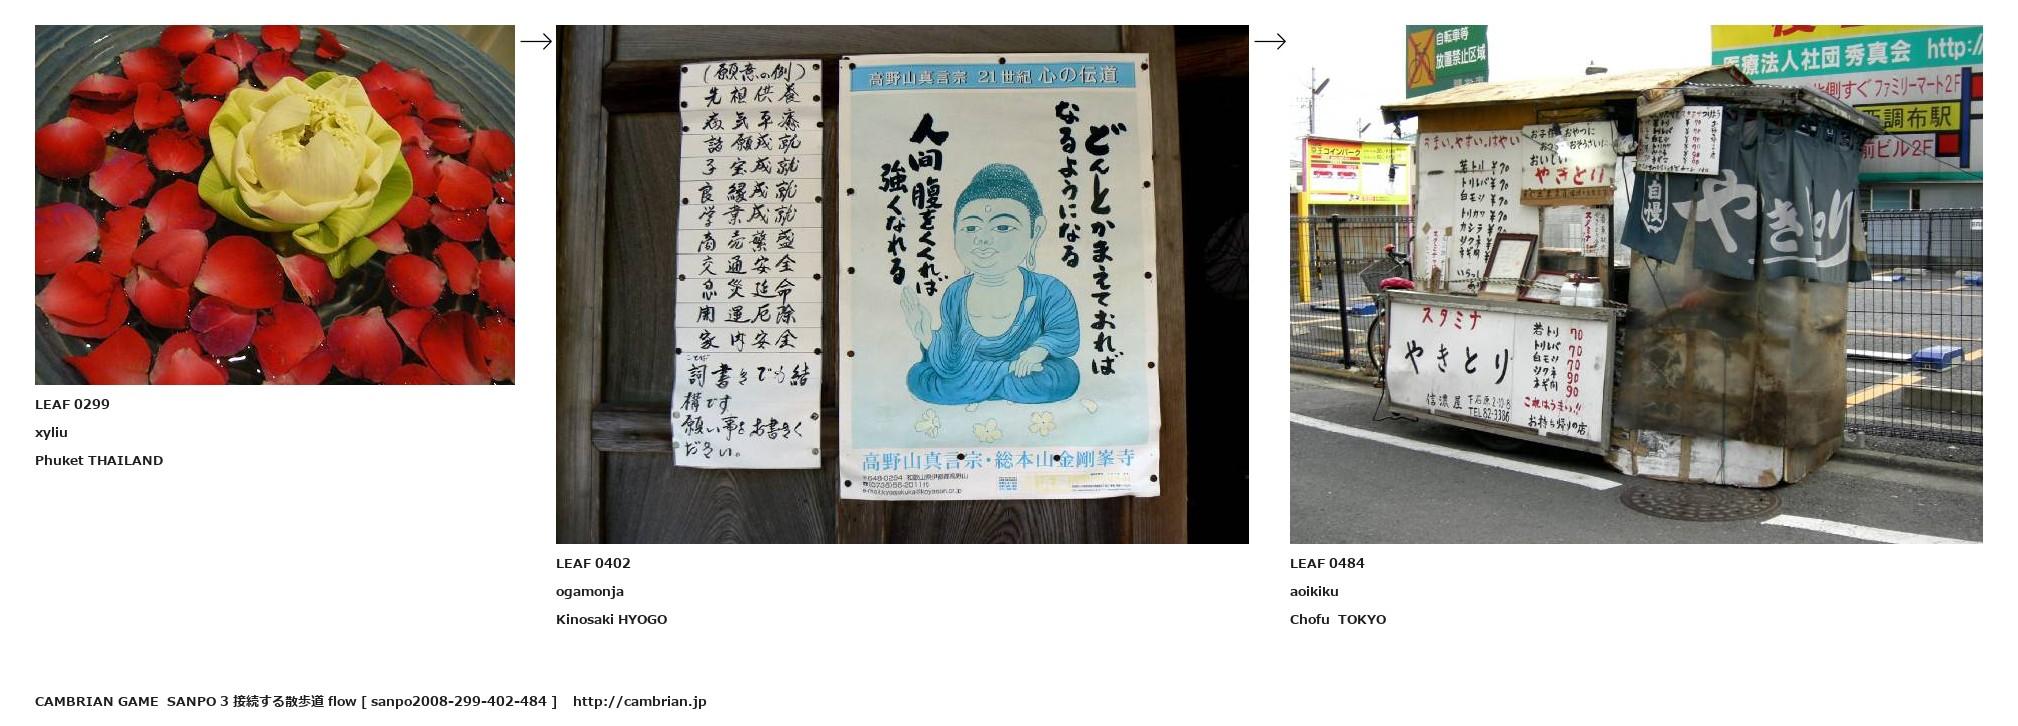 (願意の例)
先祖供養
病気平癒
諸願成就
子宝成就
良縁成就
学業成就
商売繁盛
交通安全
息災延命
開運厄除
家内安全
ことば
詞書きでも結
構です
願い事をお書きく
ださい。
高野山真言宗 21世紀 心の伝道
どんとかまえておれば
なるようになる
人間腹をくくれば
強くなれる
高野山真言宗・総本山金剛峯寺
〒648-0294 和歌山県伊都郡高野山
(0736)56-2011
自転車等
放置禁止区域
医療法人社団 秀真会 http://
側すぐファミリーマート2F
西調布駅
前ビル2F
コインパーク
うまい、やすい、はやい
若トリ ¥70
トリレバ ¥70
白モツ ¥70
おやつに
おいしい
やきとり
自慢
やきとり
スタミナ
やきとり
信濃屋 下石原2-10-8
TEL 82-9386
若トリ 70
トリレバ 70
白モツ 70
シクネ 90
ネギ肉 90
これはうまい!!
お持ち帰りの店
LEAF 0299
xyliu
Phuket THAILAND
LEAF 0402
ogamonja
Kinosaki HYOGO
LEAF 0484
aoikiku
Chofu TOKYO
CAMBRIAN GAME SANPO 3 接続する散歩道 flow [ sanpo2008-299-402-484 ] http://cambrian.jp